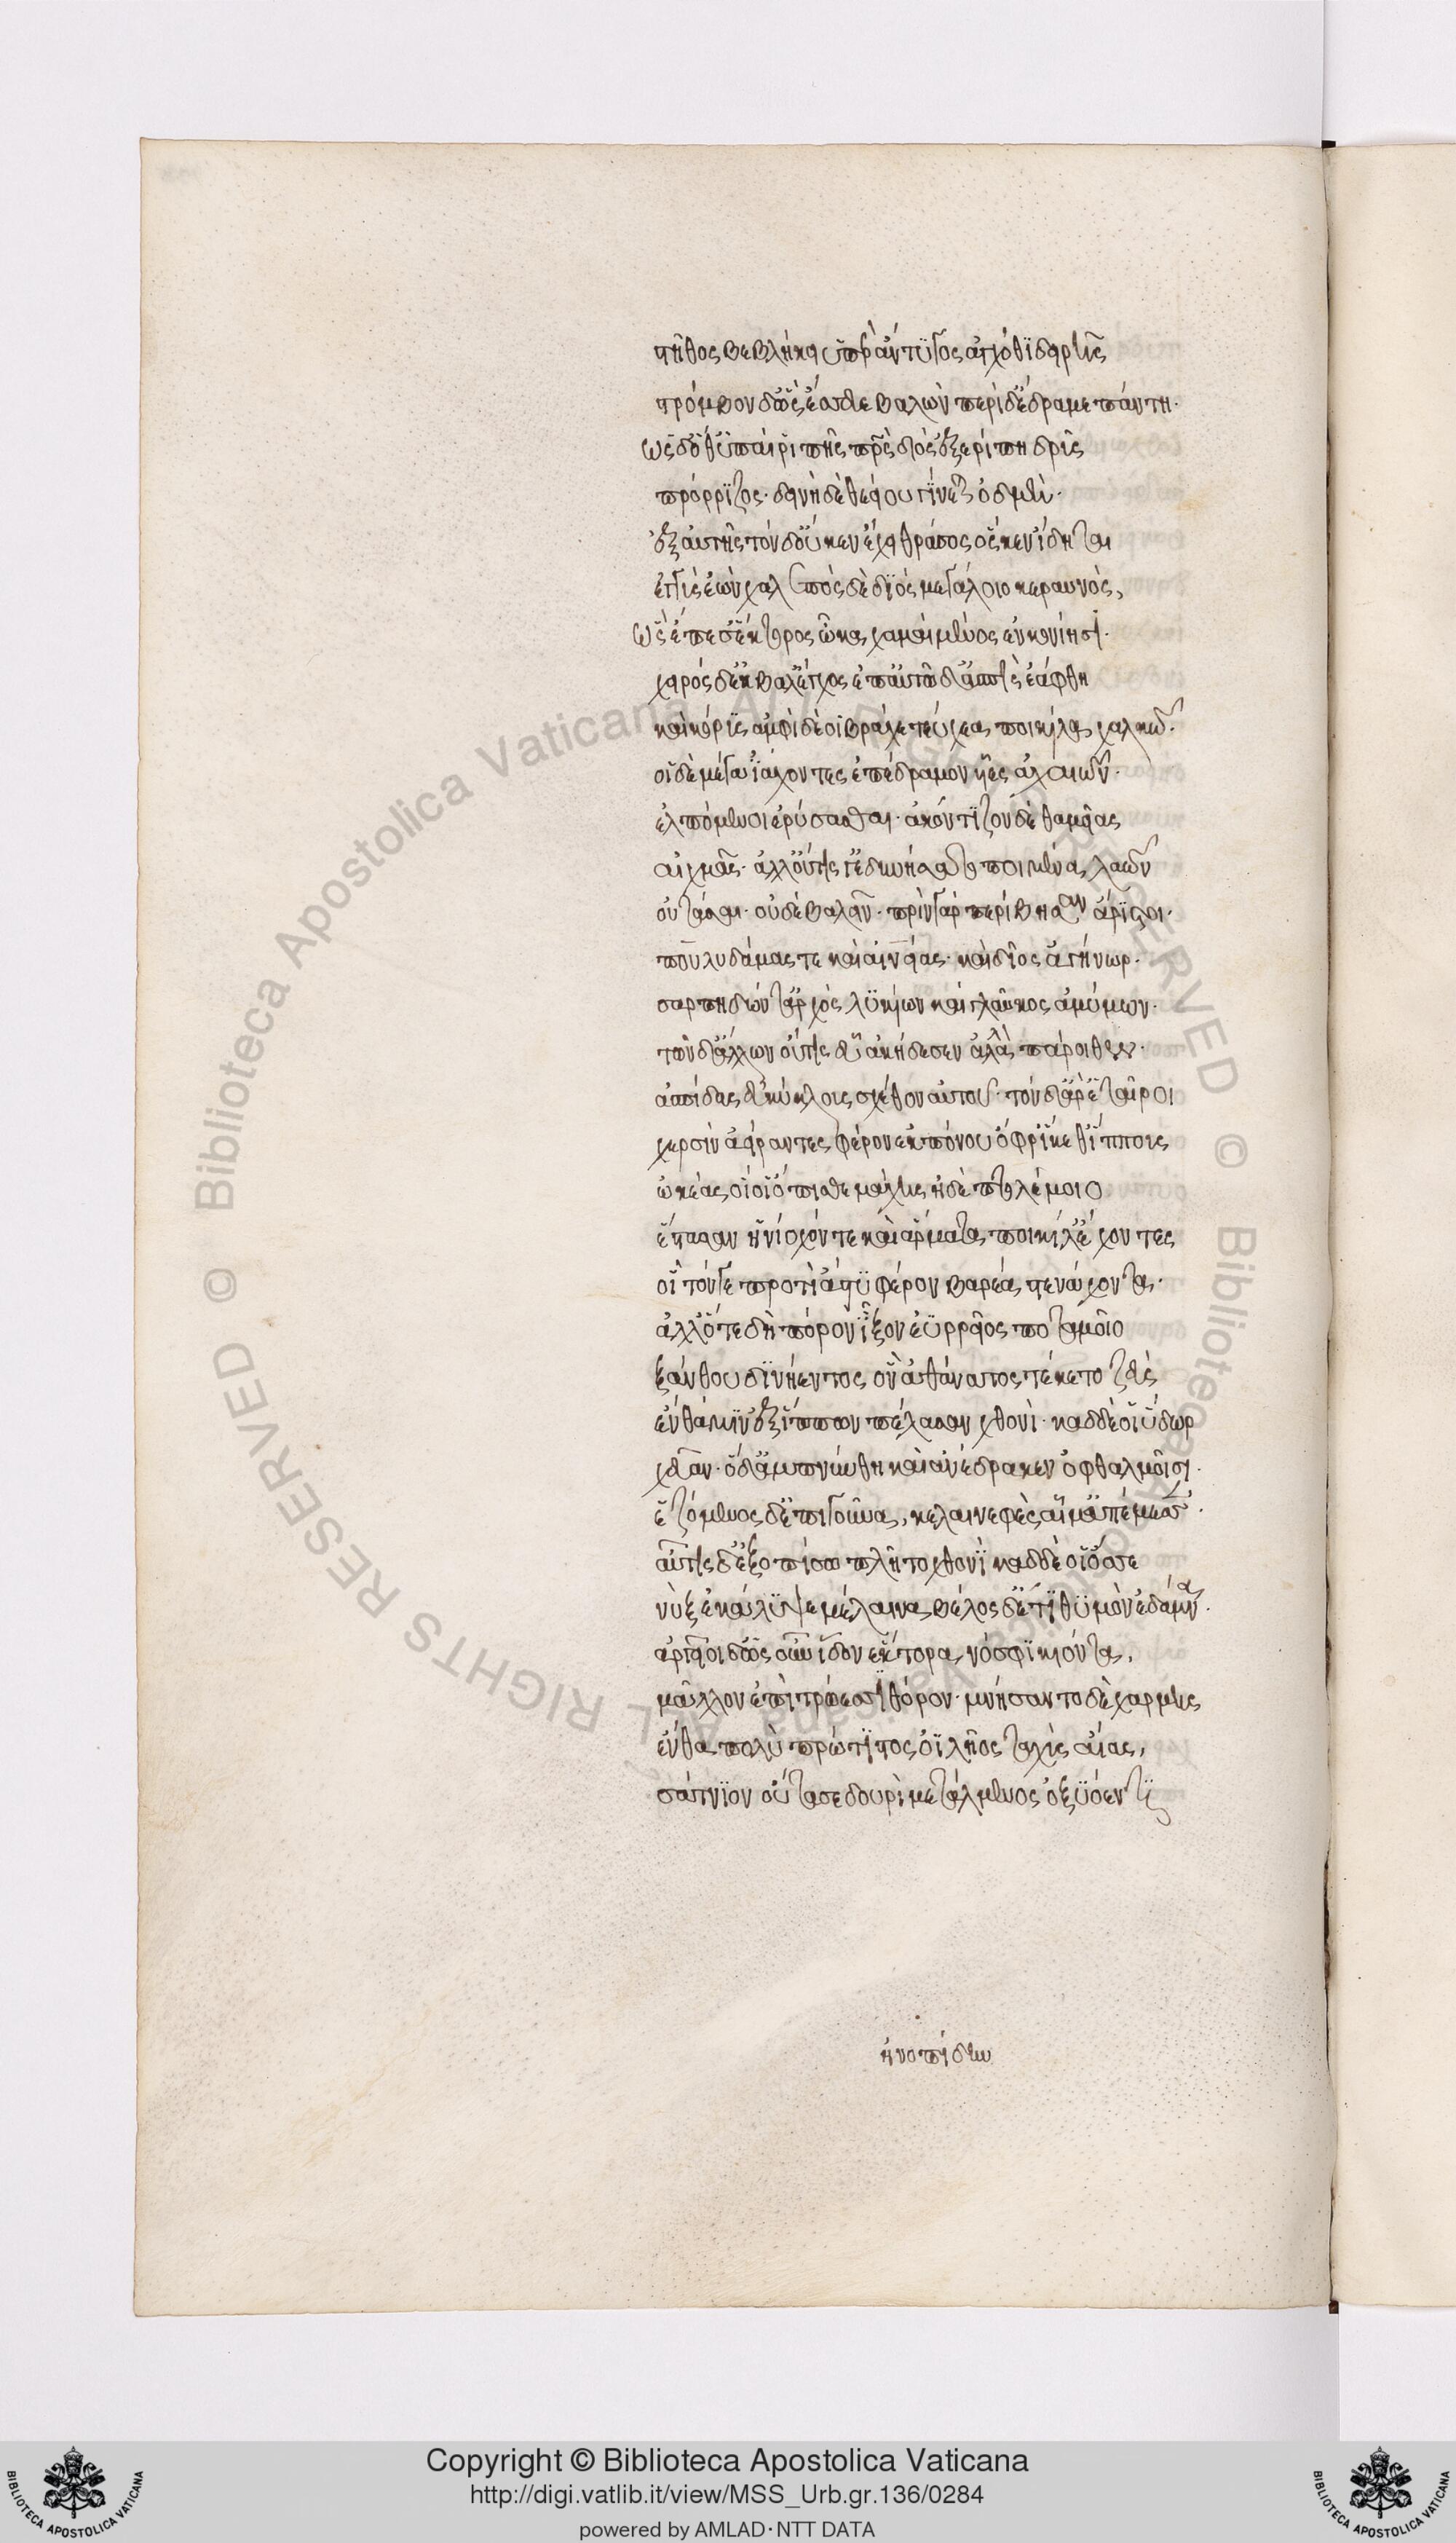 στῆθος βεβλήκει ὑπὲρ ἄντυγος ἀγχόθι δειρῆς
στρόμβον δ' ὣς ἔσσευε βαλὼν περὶ δ' ἔδραμε πάντη.
ὡς δ' ὅθ' ὑπαὶ ῥιπῆς πρς διὸς ἐξερίπῃ δρῦς
πρόρριζος. δεινὴ δὲ θεείου γίνεται ὀδμὴ.
ἐξ αὐτῆς τὸν δ' οὔ κεν ἔχει θράσος ὅς κεν ἴδηται
ἐγγὺς ἐὼν χαλεπὸς δὲ διὸς μεγάλοιο κεραυνὸς,
ὡς ἔπεσ' ἕκτορος ὦκα χαμαὶ μένος ἐν κονίῃσι.
χειρὸς δ' ἔκβαλ' ἔγχος ἐπ' αὐτῶ δ' ἀσπὶς ἑάφθη
καὶ κόρυς ἀμφὶ δέ οἱ βράχε τεύχεα ποικίλα χαλκῶ.
οἱ δὲ μέγα ἰάχοντες ἐπέδραμον υἷες ἀχαιῶν.
ἐλπόμενοι ἐρύσασθαι. ἀκόντιζον δὲ θαμειὰς
αἰχμὰς. ἀλλ' οὔτις ἐδυνήσατο ποιμένα λαῶν
οὐτάσαι. οὐδὲ βαλεῖν. πρὶν γὰρ περίβησαν ἄριστοι.
πουλυδάμας τε καὶ αἰνείας. καὶ δῖος ἀγήνωρ.
σαρπηδών τ' ἀρχὸς λυκίων καὶ γλαῦκος ἀμύμων.
τῶν δ' ἄλλων οὔτις εὑ ἀκήδεσεν ἀλλὰ πάροιθεν.
ἀσπίδας εὐκύκλοις σχέθον αὐτοῦ. τὸν δ' ἄρ' ἑταῖροι
χερσὶν ἀείραντες φέρον ἐκ πόνου ὄφρ' ἵκεθ' ἵππους
ὠκέας οἵ οἱ ὄπισθε μάχης ἠδὲ πτολέμοιο
ἕστασαν ἡνίοχόν τε καὶ ἅρματα ποικίλ' ἔχοντες
οἳ τόνγε προτὶ ἄστυ φέρον βαρέα στενάχοντα.
ἀλλ' ὅτε δὴ πόρον ἷξον ἐϋρρεῖος ποταμοῖο
ξάνθου δινήεντος ὃν ἀθάνατος τέκετο ζεὺς
ἔνθά μιν ἐξ ἵππων πέλασαν χθονὶ. καδδέ οἱ ὕδωρ
χεῦαν. ὁ δ' ἀμπνύνθη καὶ ἀνέδρακεν ὀφθαλμοῖσι.
ἑζόμενος δ' ἐπὶ γοῦνα, κελαινεφὲς αἷμ' ἀπέμεσσεν.
αὖτις δ' ἐξοπίσω πλῆτο χθονὶ καδδέ οἱ ὄσσε
νὺξ ἐκάλυψε μέλαινα βέλος δ' ἔτι θυμὸν ἐδάμνα.
ἀργεῖοι δ' ὡς οὖν ἴδον ἕκτορα νόσφι κιόντα,
μᾶλλον ἐπὶ τρώεσσι θόρον. μνήσαντο δὲ χάρμης
ἔνθα πολὺ πρώτιστος ὀϊλῆος ταχὺς αἴας,
σάτνιον οὔτασε δουρὶ μετάλμενος ὀξυόεντι
ἠνοπίδην
Copyright © Biblioteca Apostolica Vaticana
http://digi.vatlib.it/view/MSS_Urb.gr.136/0284
powered by AMLAD·NTT DATA